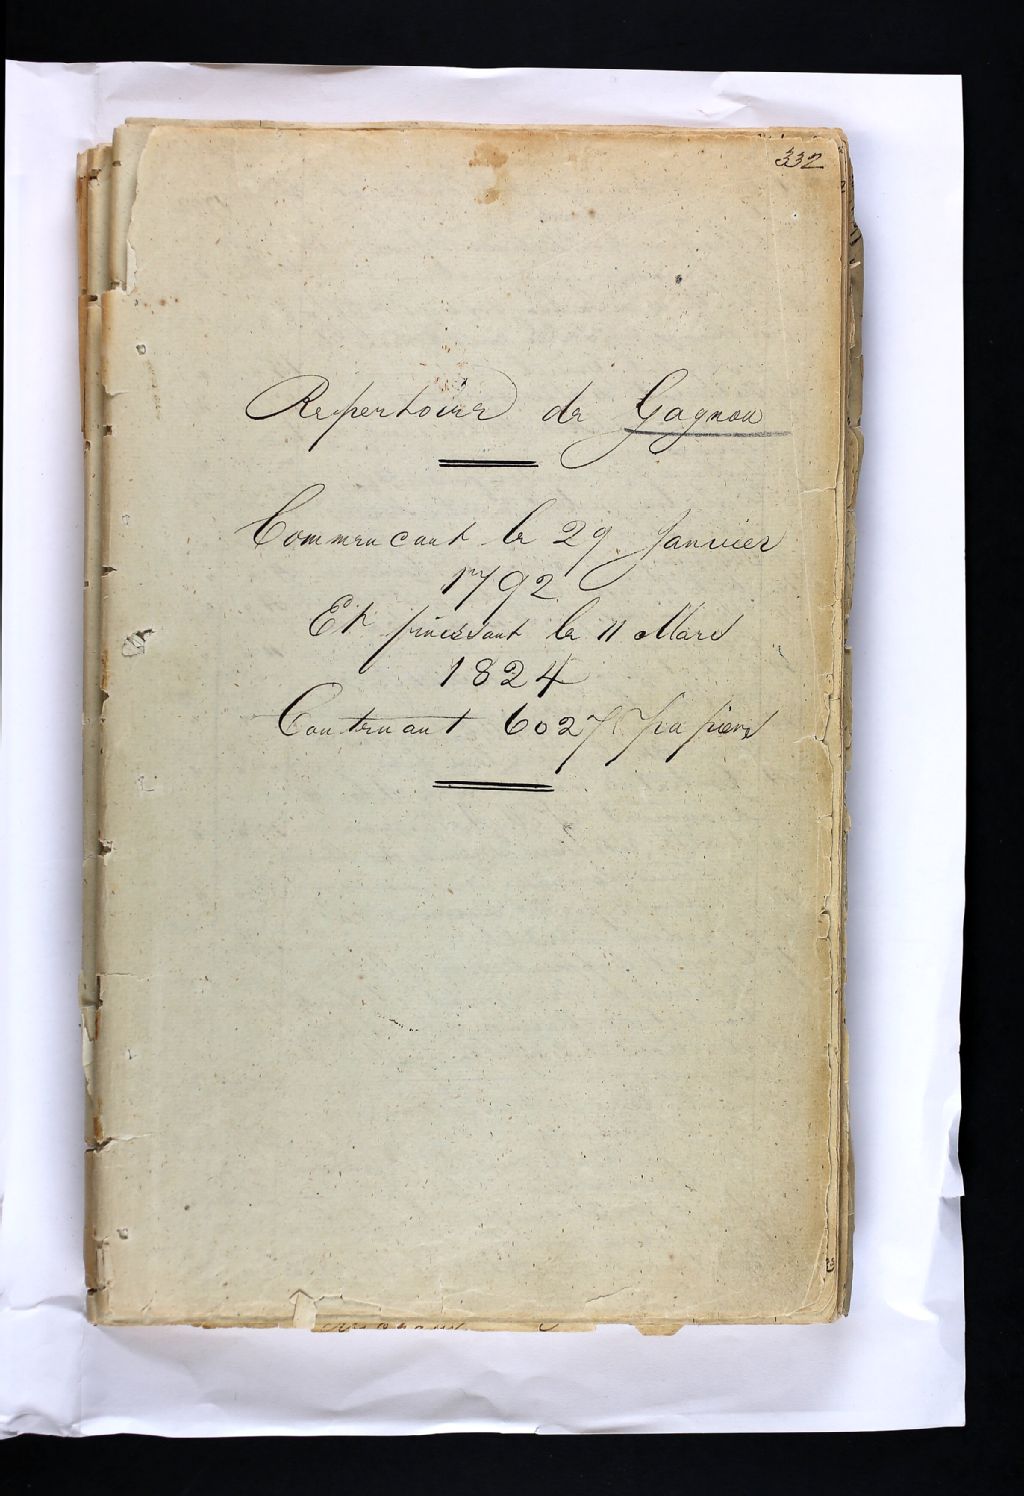 332
Repertoire de Gagnon
Commencant le 29 Janvier
1792
Et finissant le 11 Mars
1824
Contenant 6027 Papiers